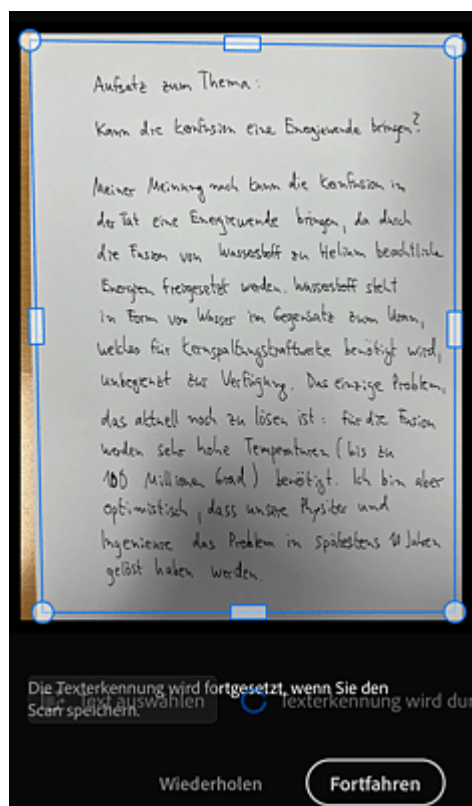 Aufsatz zum Thema:
Kann die Kernfusion eine Energiewende bringen?
Meiner Meinung nach kann die Kernfusion in
der Tat eine Energiewende bringen, da durch
die Fusion von Wasserstoff zu Helium beachtliche
Energien freigesetzt werden. Wasserstoff steht
in Form von Wasser im Gegensatz zum Uran,
welches für Kernspaltungskraftwerke benötigt wird,
unbegrenzt zur Verfügung. Das einzige Problem,
das aktuell noch zu lösen ist: für die Fusion
werden sehr hohe Temperaturen (bis zu
100 Millionen Grad) benötigt. Ich bin aber
optimistisch, dass unsere Physiker und
Ingenieure das Problem in spätestens 10 Jahren
gelöst haben werden.
Die Texterkennung wird fortgesetzt, wenn Sie den
Scan speichern.
Text auswählen
Texterkennung wird dur
Wiederholen
Fortfahren